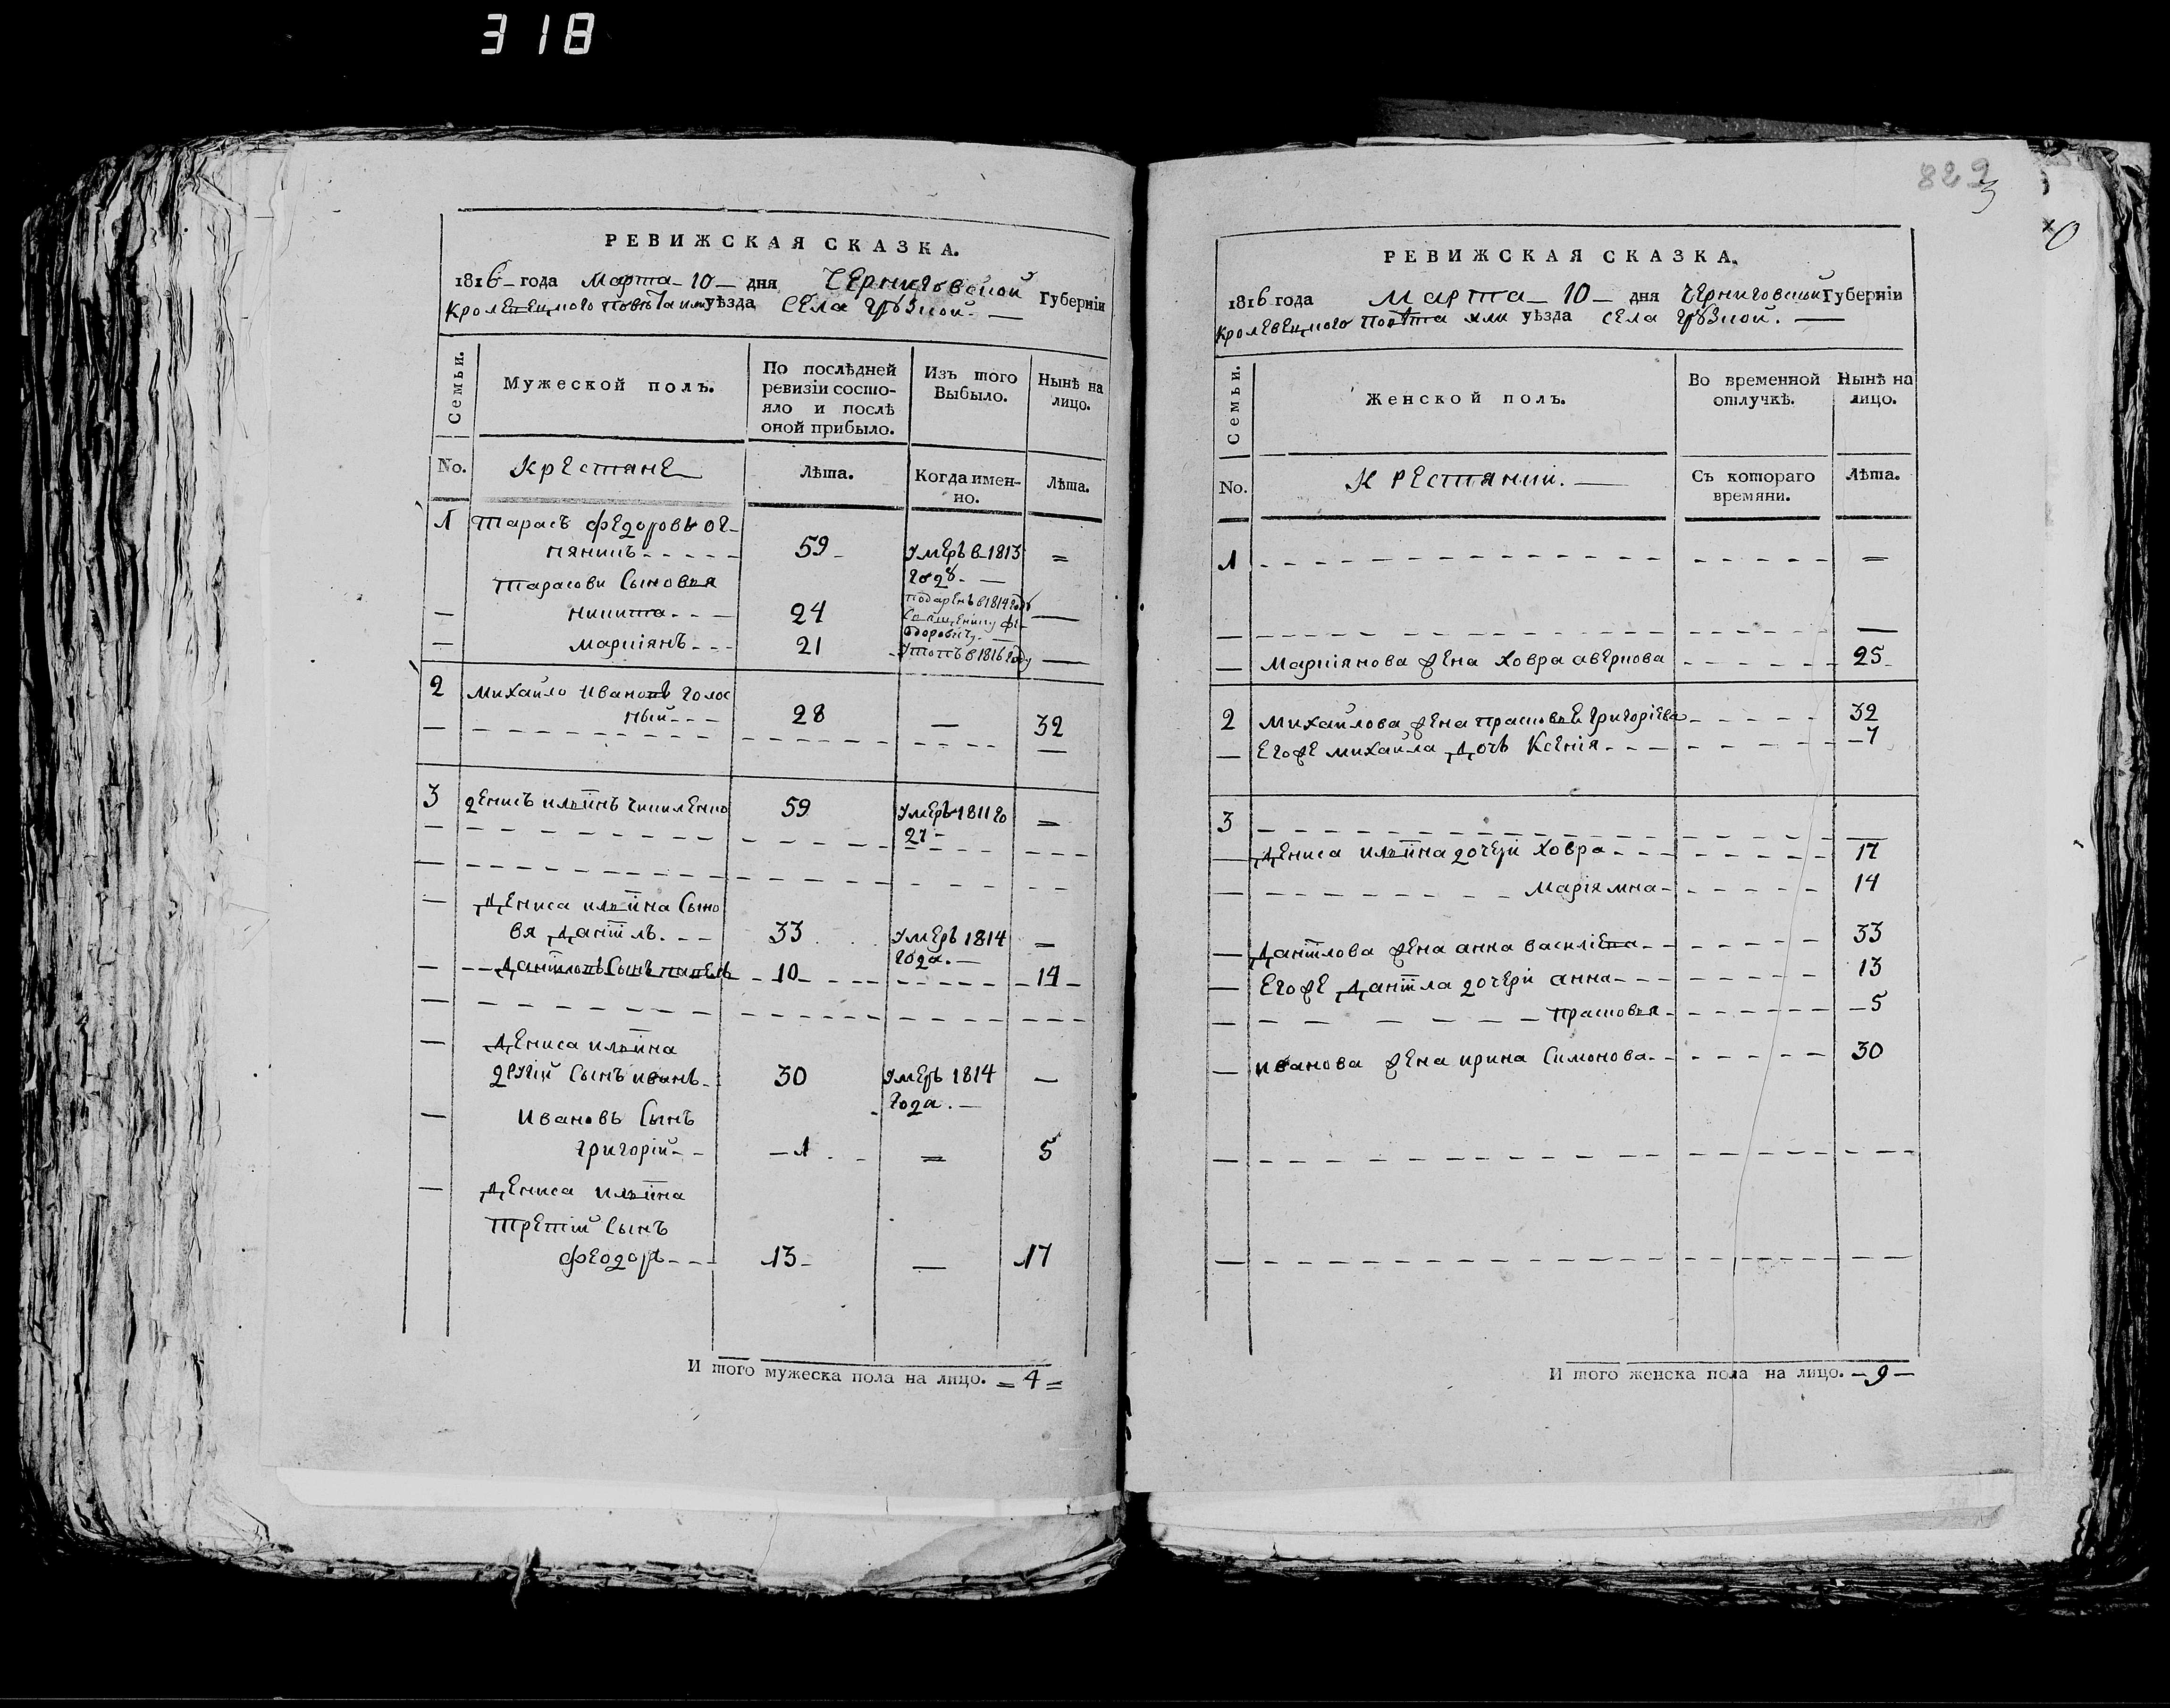 318
РЕВИЖСКАЯ СКАЗКА.
1816 года Марта 10 дня Черниговской Губерніи
Кролевецкого повѣта или уѣзда села Грузкой.
Семьи.
Мужеской полъ.
По послѣдней ревизіи состояло и послѣ оной прибыло.
Изъ того Выбыло.
Нынѣ на лицо.
No. Крестяне Лѣта. Когда именно. Лѣта.
1 Тарасъ Федоровъ
59 Умеръ в 1813
году.
Тарасови Сыновья
никита 24 подаренъ в 1814 году
Священику Фе-
одоровичу.
Маркіянъ 21 в 1816 году
2 Михайло Ивановъ Голос
ный 28 32
3 денисъ ильінъ 59 Умеръ 1811 го
Дениса ильіна Сыно
вя Даніилъ 33 Умеръ 1814
года.
Даніиловъ Сынъ павелъ 10 14
Дениса ильіна
другій Сынъ иванъ 30 Умеръ 1814
года.
Ивановъ Сынъ
григорій 1 5
Дениса ильіна
Третій Сынъ
феодоръ 13 17
И того мужеска пола на лицо. 4
823
РЕВИЖСКАЯ СКАЗКА.
1816 года Марта 10 дня Черниговской Губерніи
Кролевецкого повѣта или уѣзда села Грузкой.
Семьи.
Женской полъ.
Во временной отлучкѣ.
Нынѣ на лицо.
No. Крестянки. Съ котораго времяни. Лѣта.
1
Маркіянова жена Ховра аверкова 25
2 Михайлова жена прасковья Григоріева 32
Егоже михаила Дочь Ксенія 7
3
Дениса ильіна дочери Ховра 17
Маріямна 14
Даніилова жена анна василіева 33
Егоже Даніила дочери анна 13
прасковья 5
иванова жена ирина Симонова 30
И того женска пола на лицо. 9